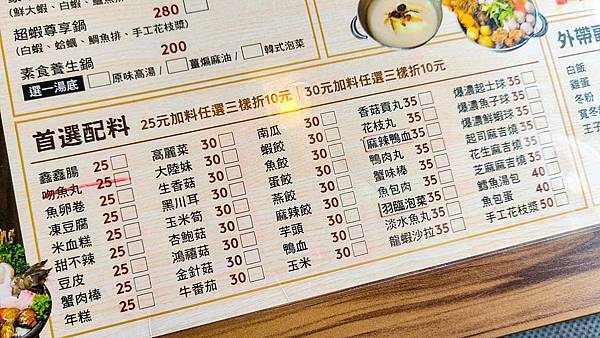 280
超蝦尊享鍋
(白蝦、蛤蠣、鯛魚排、手工花枝漿)
素食養生鍋 200
選一湯底 原味高湯 / 薑煸麻油 / 韓式泡菜
首選配料 25元加料任選三樣折10元 | 30元加料任選三樣折10元
鑫鑫腸 25
吻魚丸 25
魚卵卷 25
凍豆腐 25
米血糕 25
甜不辣 25
豆皮 25
蟹肉棒 25
年糕 25
高麗菜 30
大陸妹 30
生香菇 30
黑川耳 30
玉米筍 30
杏鮑菇 30
鴻禧菇 30
金針菇 30
牛番茄 30
南瓜 30
蝦餃 30
魚餃 30
蛋餃 30
燕餃 30
麻辣餃 30
芋頭 30
鴨血 30
玉米 30
香菇貢丸 35
花枝丸 35
麻辣鴨血 35
鴨肉丸 35
蟹味棒 35
魚包肉 35
羽臨泡菜 35
淡水魚丸 35
龍蝦沙拉 35
爆濃起士球 35
爆濃魚子球 35
爆濃鮮蝦球 35
起司麻吉燒 35
花生麻吉燒 35
芝麻麻吉燒 35
鱈魚 40
魚包蛋 40
手工花枝漿 50
外帶
白飯
雞蛋
冬粉
王子